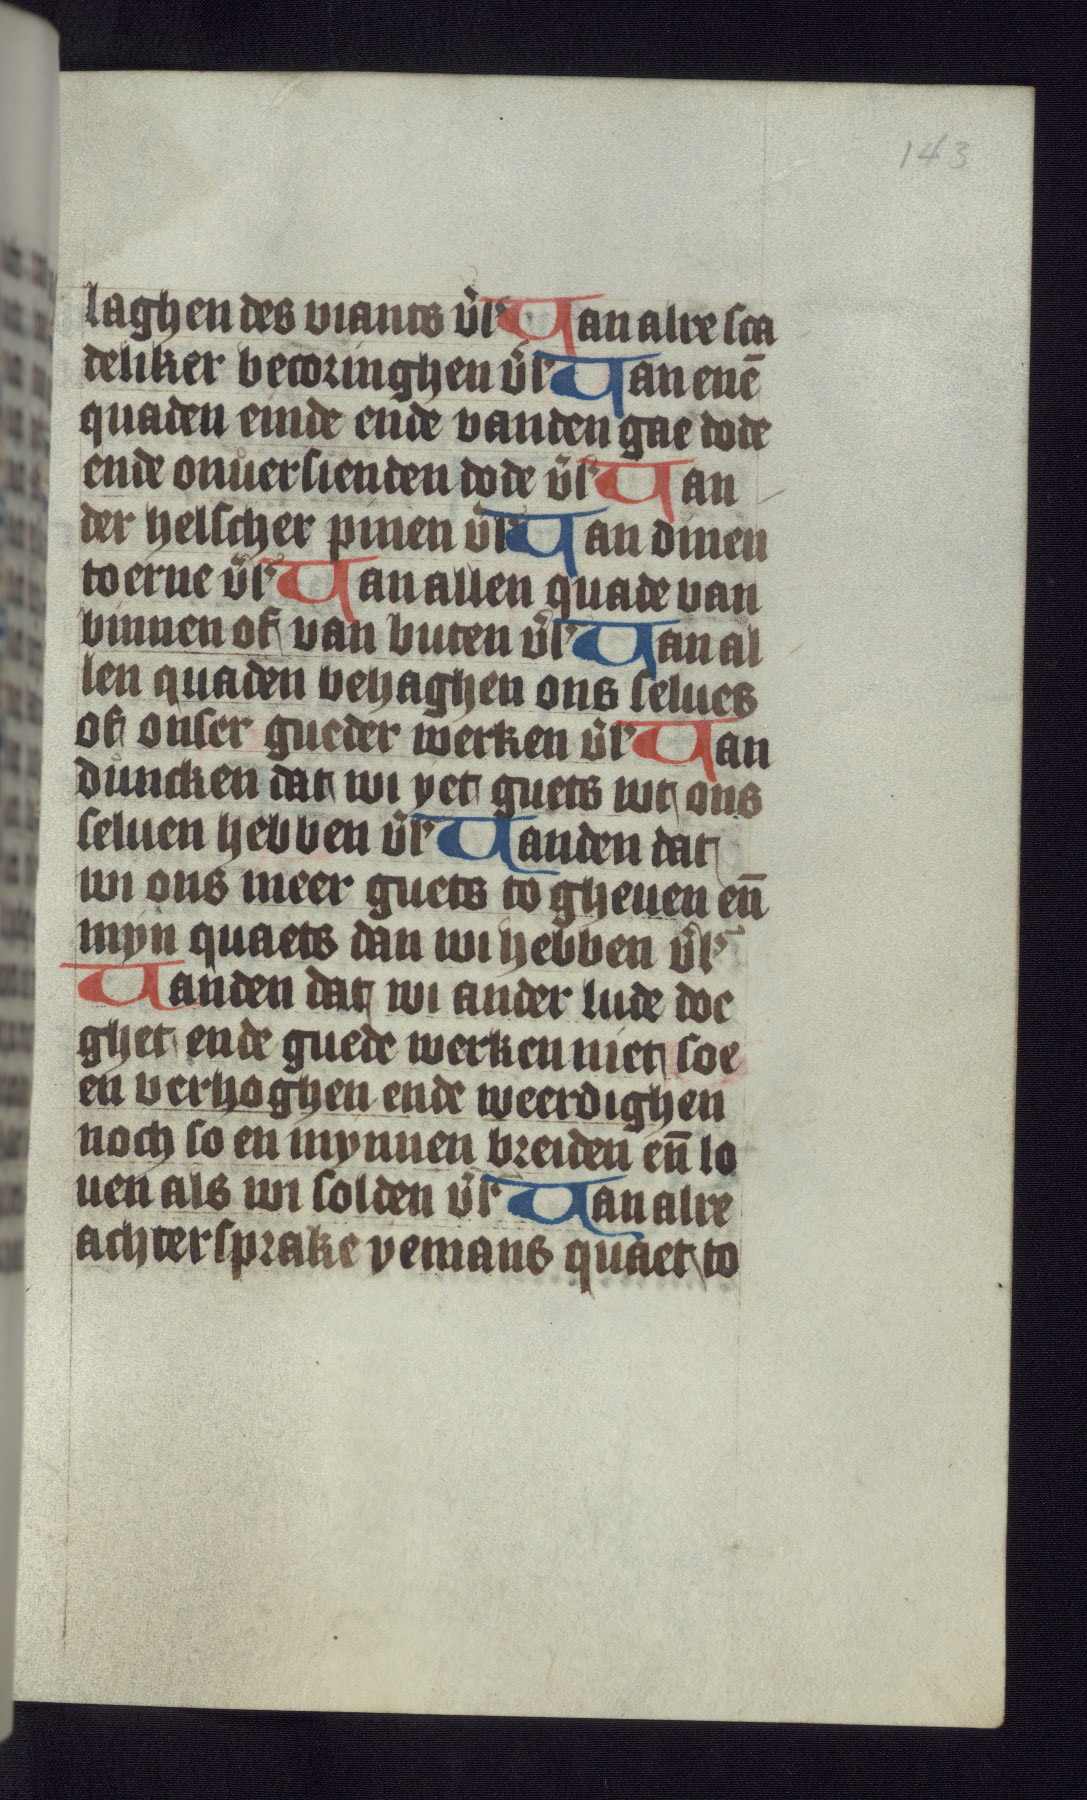 143
laghen des viants v̄l' Van alre sca
deliker becoringhen v̄l' Van enē
quaden einde ende vanden gae dode
ende onuersienden dode v̄l' Van
der helscher pinen v̄l' Van dinen
toerne v̄l' Van allen quade van
binnen of van buten v̄l' Van al
len quaden behaghen ons selues
of onser gueder werken v̄l' Van
duncken dat wi yet guets wt ons
seluen hebben v̄l' Vanden dat
wi ons meer guets to gheuen en̄
myn quaets dan wi hebben v̄l'
Vanden dat wi ander lude doe
ghet ende guede werken niet soe
en verhoghen ende weerdighen
noch so en mynnen breiden en̄ lo
uen als wi solden v̄l' Van alre
achtersprake yemans quaet to